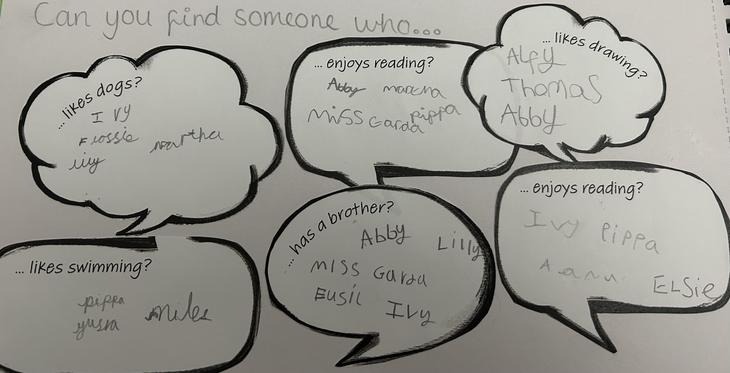 Can you find someone who...
... likes dogs?
Ivy
Flossie
martha
... enjoys reading?
Abby
Miss Garda
pippa
... likes drawing?
Alfy
Thomas
Abby
... likes swimming?
pippa
yusra
miles
... has a brother?
Abby
Lilly
miss Garda
Ivy
... enjoys reading?
Ivy Pippa
ELSie